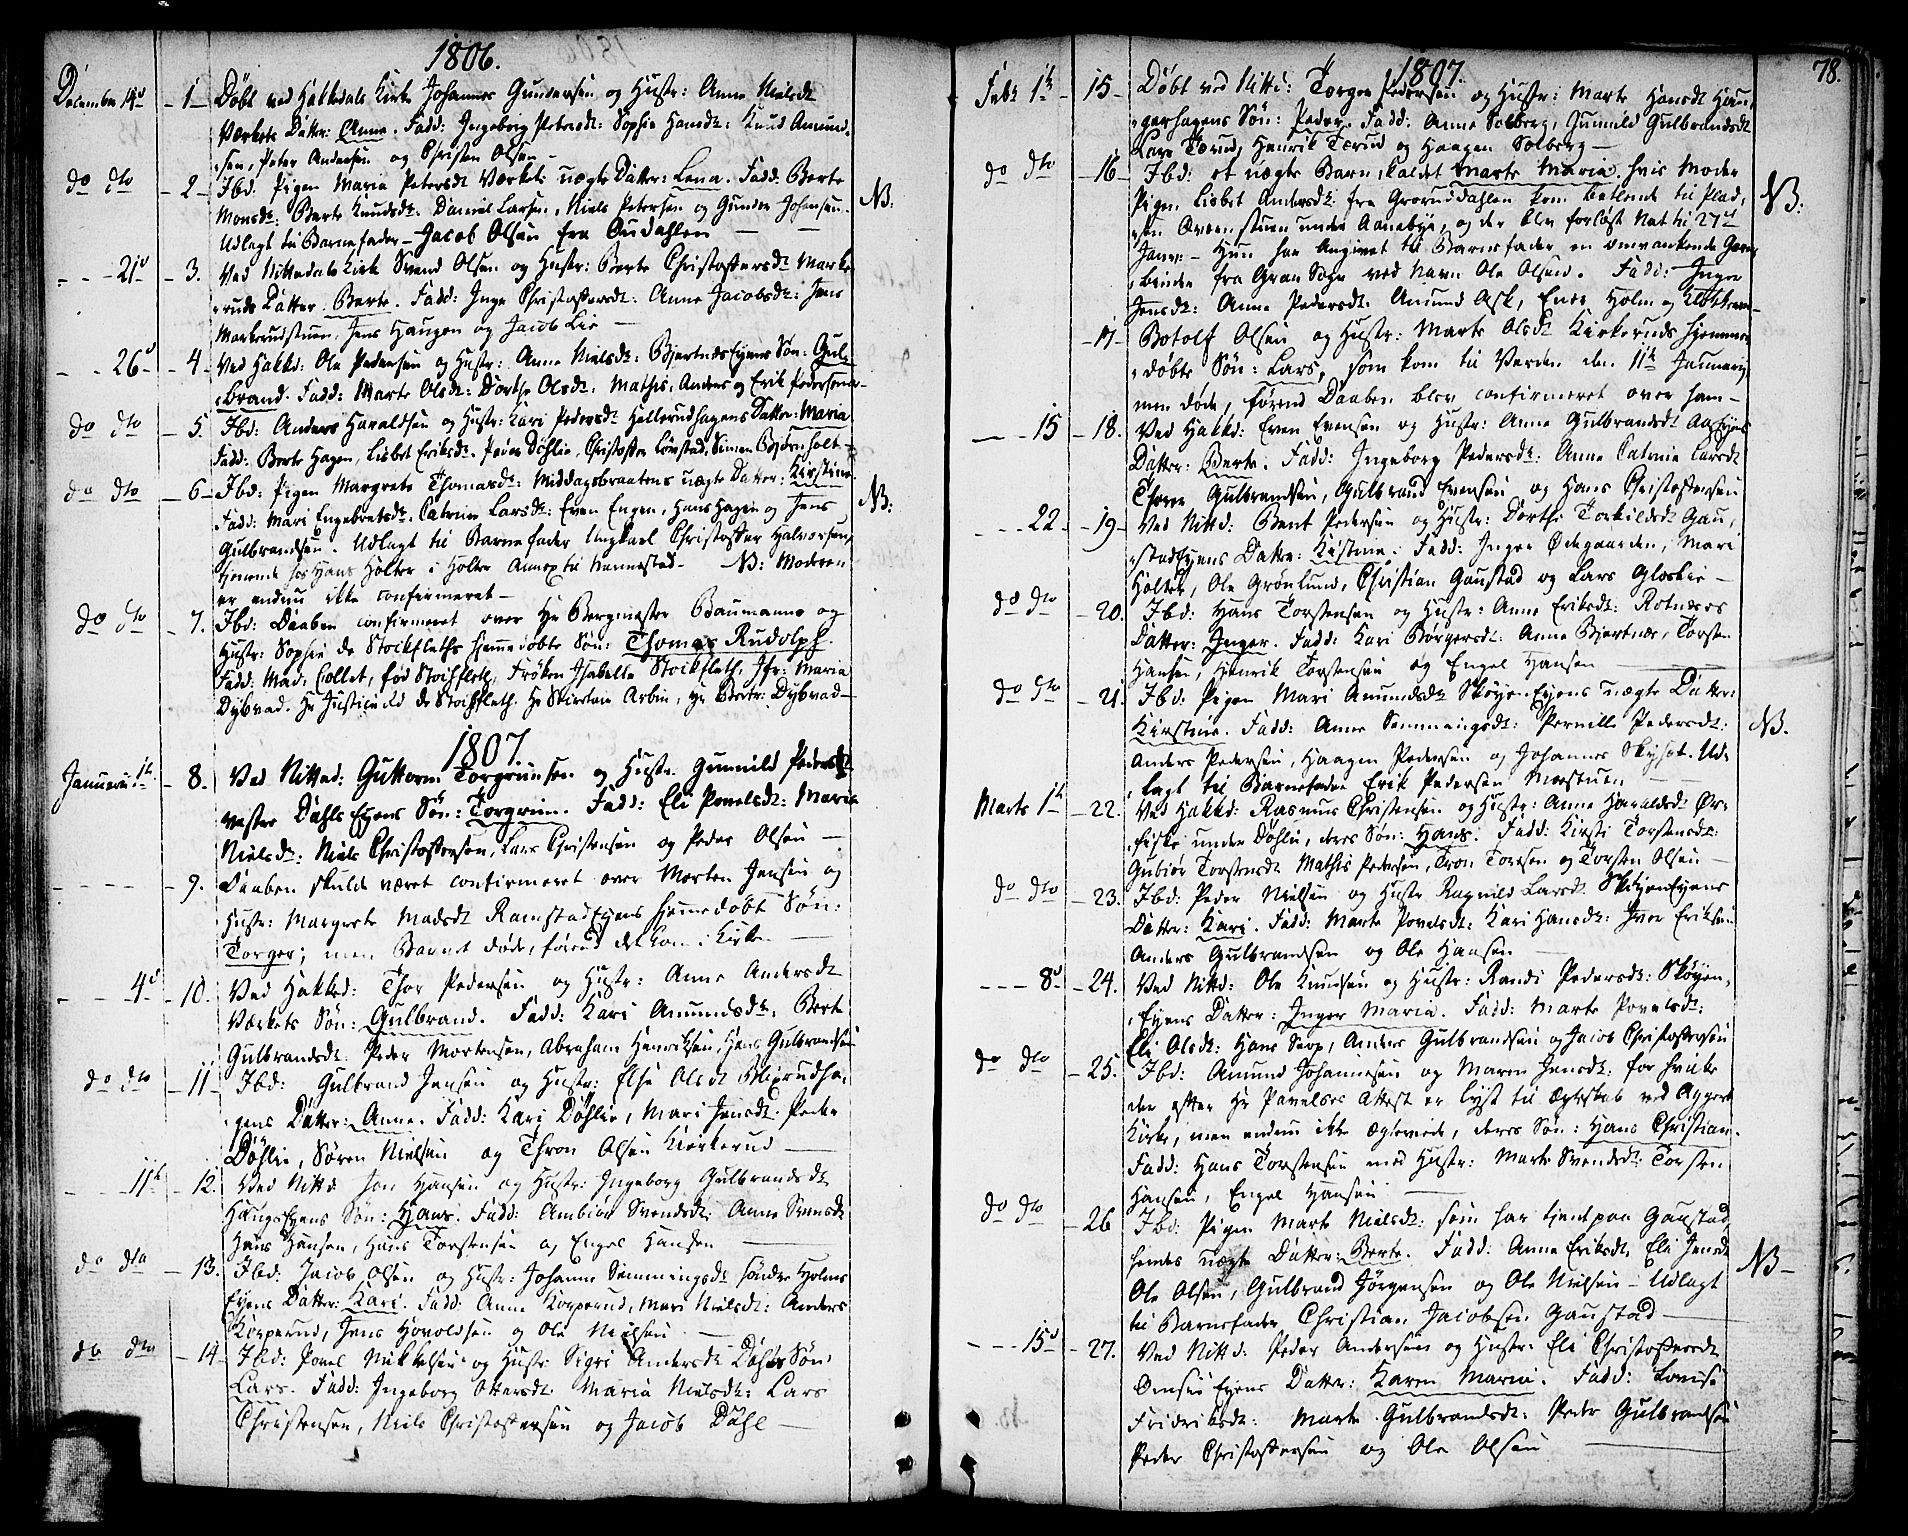 1806.
December 14d 1 Døbt ved Hakkedals Kirke Johannes Gundersen og Hustr: Anne Nielsdt
Værkets Datter: Anne. Fadd: Ingeborg Petersdt: Sophie Hansdt: Knud Amund-
sen, Peter Andersen og Christen Olsen –
do dto 2 Ibd. Pigen Maria Petersdt Værkets uægte Datter: Lena. Fadd: Berte NB:
Monsdt: Berte Knudsdt. Daniel Larsen, Niels Petersen og Gunder Johansen.
Udlagt til Barnefader – Jacob Olsen fra Oudahlen –
21d 3. Ved Nittedals Kirke Svend Olsen og Hustr: Berte Christophersdt Marke-
ruds Datter: Berte. Fadd: Inge Christophersdt: Anne Jacobsdt: Jens
Markerudstuen, Jens Haugen og Jacob Lie –
26d 4 Ved Hakkd: Ole Pedersen og Hustr: Anne Nielsdt: BjertnæsEyens Søn: Gul-
brand. Fadd: Marte Olsdt: Dorthe Olsdt. Mathis, Anders og Erik Pedersen
do dto 5. Ibd: Anders Haraldsen og Hustr: Kari Pedersdt Hellerudhagens Datter: Maria
Fadd: Berte Hagen, Lisbet Eriksdt. Peder Døhlie, Christopher Simen holt –
do dto 6 Ibd: Pigen Margrete Thomasdt: Middagsbraatens uægte Datter: Kirstine NB:
Fadd: Mari Engebretsdt. Catrine Larsdt: Even Engen, Hans Hagen og Jens
Gulbrandsen. Udlagt til Barnefader Ungkarl Christopher Halvorsen,
tjenende hos Hans Holter i Holter Annex til Nannestad – NB: Moderen
er endnu ikke confirmeret –
do dto 7. Ibd: Daaben confirmeret over Hr Bergmester Baumanns og
Hustr: Sophie de Stockfleths hjemmedøbte Søn: Thomas Rudolph.
Fadd: Mad: Collet, fød Stockfleth, Frøken Isabella Stockfleth, Jfr: Maria
Dybvad. Hr de Stockfleth. Hr Arbin, Hr Dybvad –
1807.
Januarii 1te 8. Ved Nitted: Guttorm Torgrimsen og Hustr. Gunnild Pedersdt
vestre DahlsEyens Søn: Torgrim. Fadd: Eli Povelsdt: Marie
Nielsdt: Niels Christophersen, Lars Christensen og Peder Olsen –
9. Daaben skulde været confirmeret over Morten Jensen og
Hustr: Margrete Madsdt RamstadEyens hjemmedøbt Søn:
Torger; men Barnet døde, førend det kom i Kirke –
4d 10. Ved Hakked: Thor Pedersen og Hustr: Anne Andersdt
Værkets Søn: Gulbrand. Fadd: Kari Amundsdt. Berte
Gulbrandsdt. Peder Mortensen, Abraham Henriksen, Hans Gulbrandsen
do dto 11 Ibd: Gulbrand Jensen og Hustr: Else Olsdt
gens Datter: Anne. Fadd: Kari Døhlie, Mari Jensdt. Peder
Døhlie, Søren Nielsen og Thron Olsen Kierkerud –
11te 12. Ved Nittd Jon Hansen og Hustr: Ingeborg Gulbrandsdt
HaugsEyens Søn: Hans. Fadd: Ambiør Svendsdt: Anne Svensdt
Hans Hansen, Hans Torstensen og Engel Hansen –
do dto 13. Ibd: Jacob Olsen og Hustr: Johanne Simmingsdt søndre Holms
Eyens Datter: Kari. Fadd: Anne Korperud, Mari Nielsdt: Anders
Korperud, Jens Hovoldsen og Ole Nielsen –
do dto 14 Ibd: Povel Mikkelsen og Hustr: Sigri Andersdt Dahls Søn:
Lars. Fadd: Ingeborg Ottersdt. Maria Nielsdt: Lars
Christensen, Niels Christophersen og Jacob Dahl –
1807. 78.
Febr 1te 15 Døbt ved Nitti: Torger Pedersen og Hustr: Marte Hansdt Hau-
gerhagens Søn: Peder. Fadd: Anne Solberg, Gunnild Gulbrandsdt
Lars Tærud, Henrik Tærud og Haagen Solberg –
do dto 16 Ibd: et uægte Barn, kaldet Marte Maria. hvis Moder NB:
Pigen Lisbet Andersdt: fra Grorud dahlen kom betlende til Plad-
sen Ovenstuen under Aanebye, og der blev forløst Nat til 27d
Janr: – Hun har angivet til Barnefader en omvankende
fra Gran Sogn ved Navn Ole Olsen. Fadd: Inger
Jensdt: Anne Pedersdt: Amund Ask, Enor Holm og
17 Botolf Olsen og Hustr: Marte Olsdt Kirkeruds hjemme-
døbte Søn: Lars, som kom til Verden den 11te Januarii,
men døde, førend Daaben blev confirmeret over ham –
15 18. Ved Hakkd: Even Evensen og Hustr: Anne Gulbrandsdt
Datter: Berte. Fadd: Ingeborg Pedersdt: Anne Catrine Larsdt
Thorer Gulbrandsen, Gulbrand Evensen og Hans Christophersen
22 19 Ved Nittd: Bent Pedersen og Hustr: Dorthe Torkildsdt Gau-
stadEyens Datter: Kistine. Fadd: Inger Ødegaarden, Mari
Holter, Ole Grønlund, Christian Gaustad og Lars Gloslie –
do dto 20. Ibd: Hans Torstensen og Hustr: Anne Eriksdt: Rotnæs
Datter: Inger. Fadd: Kari Børgersdt: Anne Bjertnæs, Torsten
Hansen, Henrik Torstensen og Engel Hansen
do dto 21. Ibd: Pigen Mari Amundsdt SkøyenEyens uægte Datter: NB.
Kirstine. Fadd: Anne Semmingsdt: Pernille Pedersdt:
Anders Pedersen, Haagen Pedersen og Johannes Skyset. Ud-
lagt til Barnefader Erik Pedersen Mostuen –
Marts 1te 22. Ved Hakkd: Rasmus Christensen og Hustr: Anne Haraldsdt: Ør-
fiske under Døhlie, deres Søn: Hans. Fadd: Kirsti Torstensdt:
Gubiør Torstensdt Mathis Pedersen, Tron Toresen og Torsten Olsen
do dto 23. Ibd: Peder Nielsen og Hustr Ragnild Larsdt SkøyenEyens
Datter: Kari. Fadd: Marte Povelsdt: Kari Hansdt: Iver Eriksen
Anders Gulbrandsen og Ole Hansen –
8d 24. Ved Nittd: Ole Knudsen og Hustr: Randi Pedersdt: Skøyen-
Eyens Datter: Inger Maria. Fadd: Marte Povelsdt:
Eli Olsdt: Hans Anders Gulbrandsen og Jacob Christophersen
do dto 25. Ibd: Amund Johannesen og Maren Jensdt: for hvilke
der efter Hr Pavelses Attest er lyst til Ægteskab ved Aggers
Kirke, men endnu ikke Ægteviede, deres Søn: Hans Christian.
Fadd: Hans Torstensen med Hustr: Marte Svendsdt: Torsten
Hansen, Engel Hansen –
do dto 26 Ibd: Pigen Marte Nielsdt: som har tjent paa Gaustad
hendes uægte Datter: Berte. Fadd: Anne Eriksdt, Eli Jensdt NB –
Ole Olsen, Gulbrand Jörgensen og Ole Nielsen – Udlagt
til Barnefader Christian Jacobsen Gaustad –
15d 27. Ved Nittd: Peder Andersen og Hustr: Eli Christophersdt
Eyens Datter: Karen Maria. Fadd: Lovise
Fridriksdt: Marte Gulbrandsdt: Peder Gulbrandsen
Peder Christophersen og Ole Olsen –